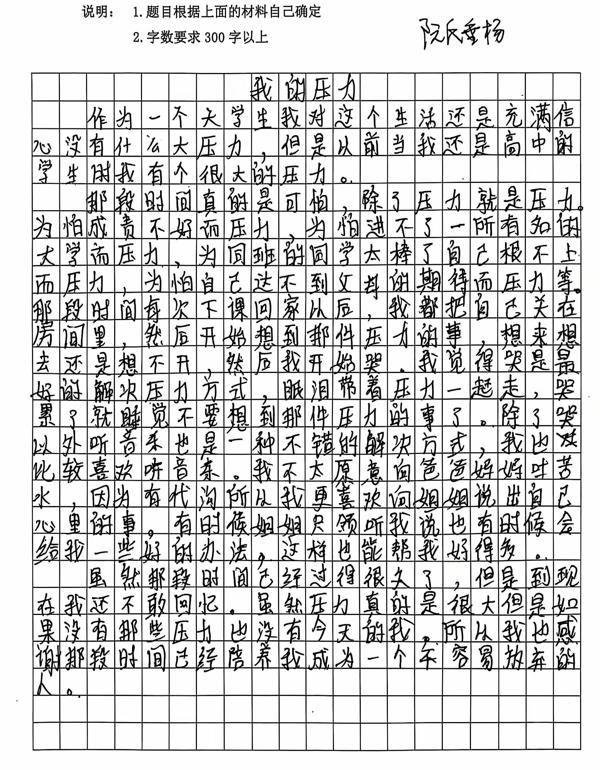 说明： 1.题目根据上面的材料自己确定
2.字数要求 300 字以上
阮氏垂杨
我的压力
作为一个大学生我对这个生活还是充满信
心没有什么大压力，但是以前当我还是高中的
学生时我有个很大的压力。
那段时间真的是可怕，除了压力就是压力。
为怕成责不好而压力，为怕进不了一所有名的
大学而压力，为同班的同学太棒了自己根不上
而压力，为怕自己达不到父母的期待而压力等。
那段时间每次下课回家以后，我都把自己关在
房间里，然后开始想到那件压力的事，想来想
去还是想不开，然后我开始哭。我觉得哭是最
好的解次压力方式，眼泪带着压力一起走，哭
累了就睡觉不要想到那件压力的事了。除了哭
以外听音乐也是一种不错的解次方式，我也
比较喜欢听音乐。我不太原意向爸爸妈妈吐苦
水，因为有代沟所以我更喜欢向姐姐说出自己
心里的事。有时候姐姐只倾听我说也有时候会
给我一些好的办法，这样也能帮我好得多。
虽然那段时间已经过得很久了，但是到现
在我还不敢回忆。虽然压力真的是很大但是如
果没有那些压力也没有今天的我。所以我也感
谢那段时间已经陪养我成为一个不容易放弃的
人。